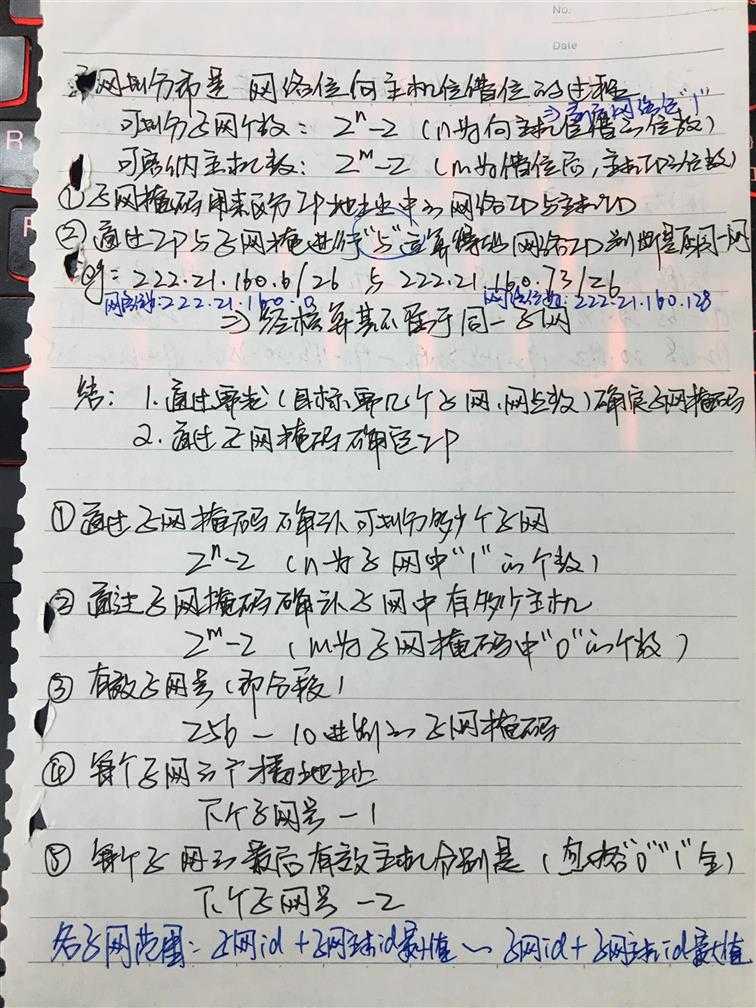 No.
Date
子网划分布是 网络位向主机位借位的过程
⇒ 子网网络位"1"
可划分子网个数: 2ⁿ-2 (n为向主机位借的位数)
可容纳主机数: 2ᵐ-2 (m为借位后,主机ID的位数)
① 子网掩码用来区分IP地址中的网络ID与主机ID
② 通过IP与子网掩进行"与"运算得出网络ID判断是否同一网
eg: 222.21.160.6/26 与 222.21.160.73/26
网络位数:222.21.160.0 网络位数:222.21.160.128
⇒ 经核算其不属于同一子网
结: 1.通过要求(目标要几个子网、网点数)确定子网掩码
2.通过子网掩码确定IP
① 通过子网掩码确认可划分多少个子网
2ⁿ-2 (n为子网中"1"的个数)
② 通过子网掩码确认子网中有多少主机
2ᵐ-2 (m为子网掩码中"0"的个数)
③ 有效子网号(即分段)
256 - 10进制的子网掩码
④ 每个子网的广播地址
下个子网号 -1
⑤ 每个子网的最后有效主机分别是 (忽略"0""1"全)
下个子网号 -2
各子网范围: 子网id + 子网主机id最小值 ~ 子网id + 子网主机id最大值
R